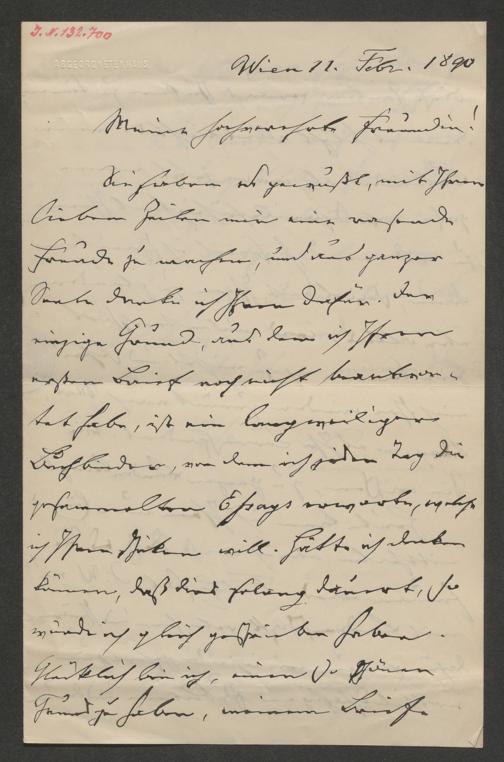 J. N. 132.700
ABGEORDNETENHAUS
Wien 11. Febr. 1890
Meine hochverehrte Freundin!
Sie haben es gewußt, mit Ihren
lieben Zeilen mir eine rasende
Freude zu machen, und aus ganzer
Seele danke ich Ihnen dafür. Der
einzige Grund, aus dem ich Ihren
ersten Brief noch nicht beantwor-
tet habe, ist ein langweiliger
Buchbinder, von dem ich jeden Tag die
gesammelten Essays erwarte, welche
ich Ihnen schicken will. Hätte ich denken
können, daß dies so lang dauert, so
würde ich gleich geschrieben haben.
Glücklich bin ich, einen so schönen
Grund zu haben, meinem Briefe